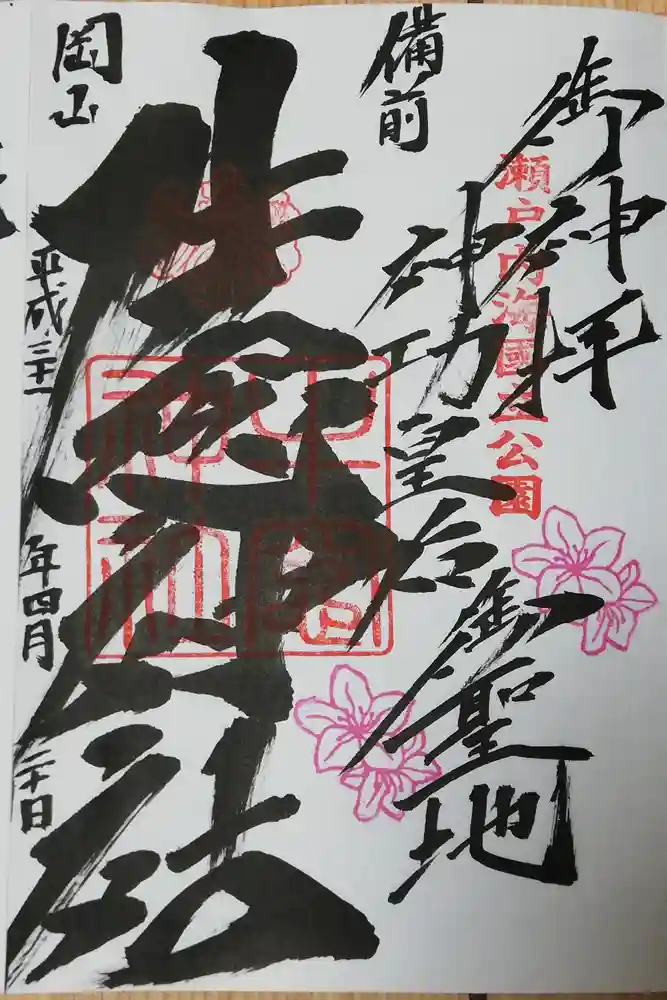 御神拝
瀬戸内海國立公園
備前
神功皇后御聖地
牛窓神社
岡山
平成三十一年四月二十日